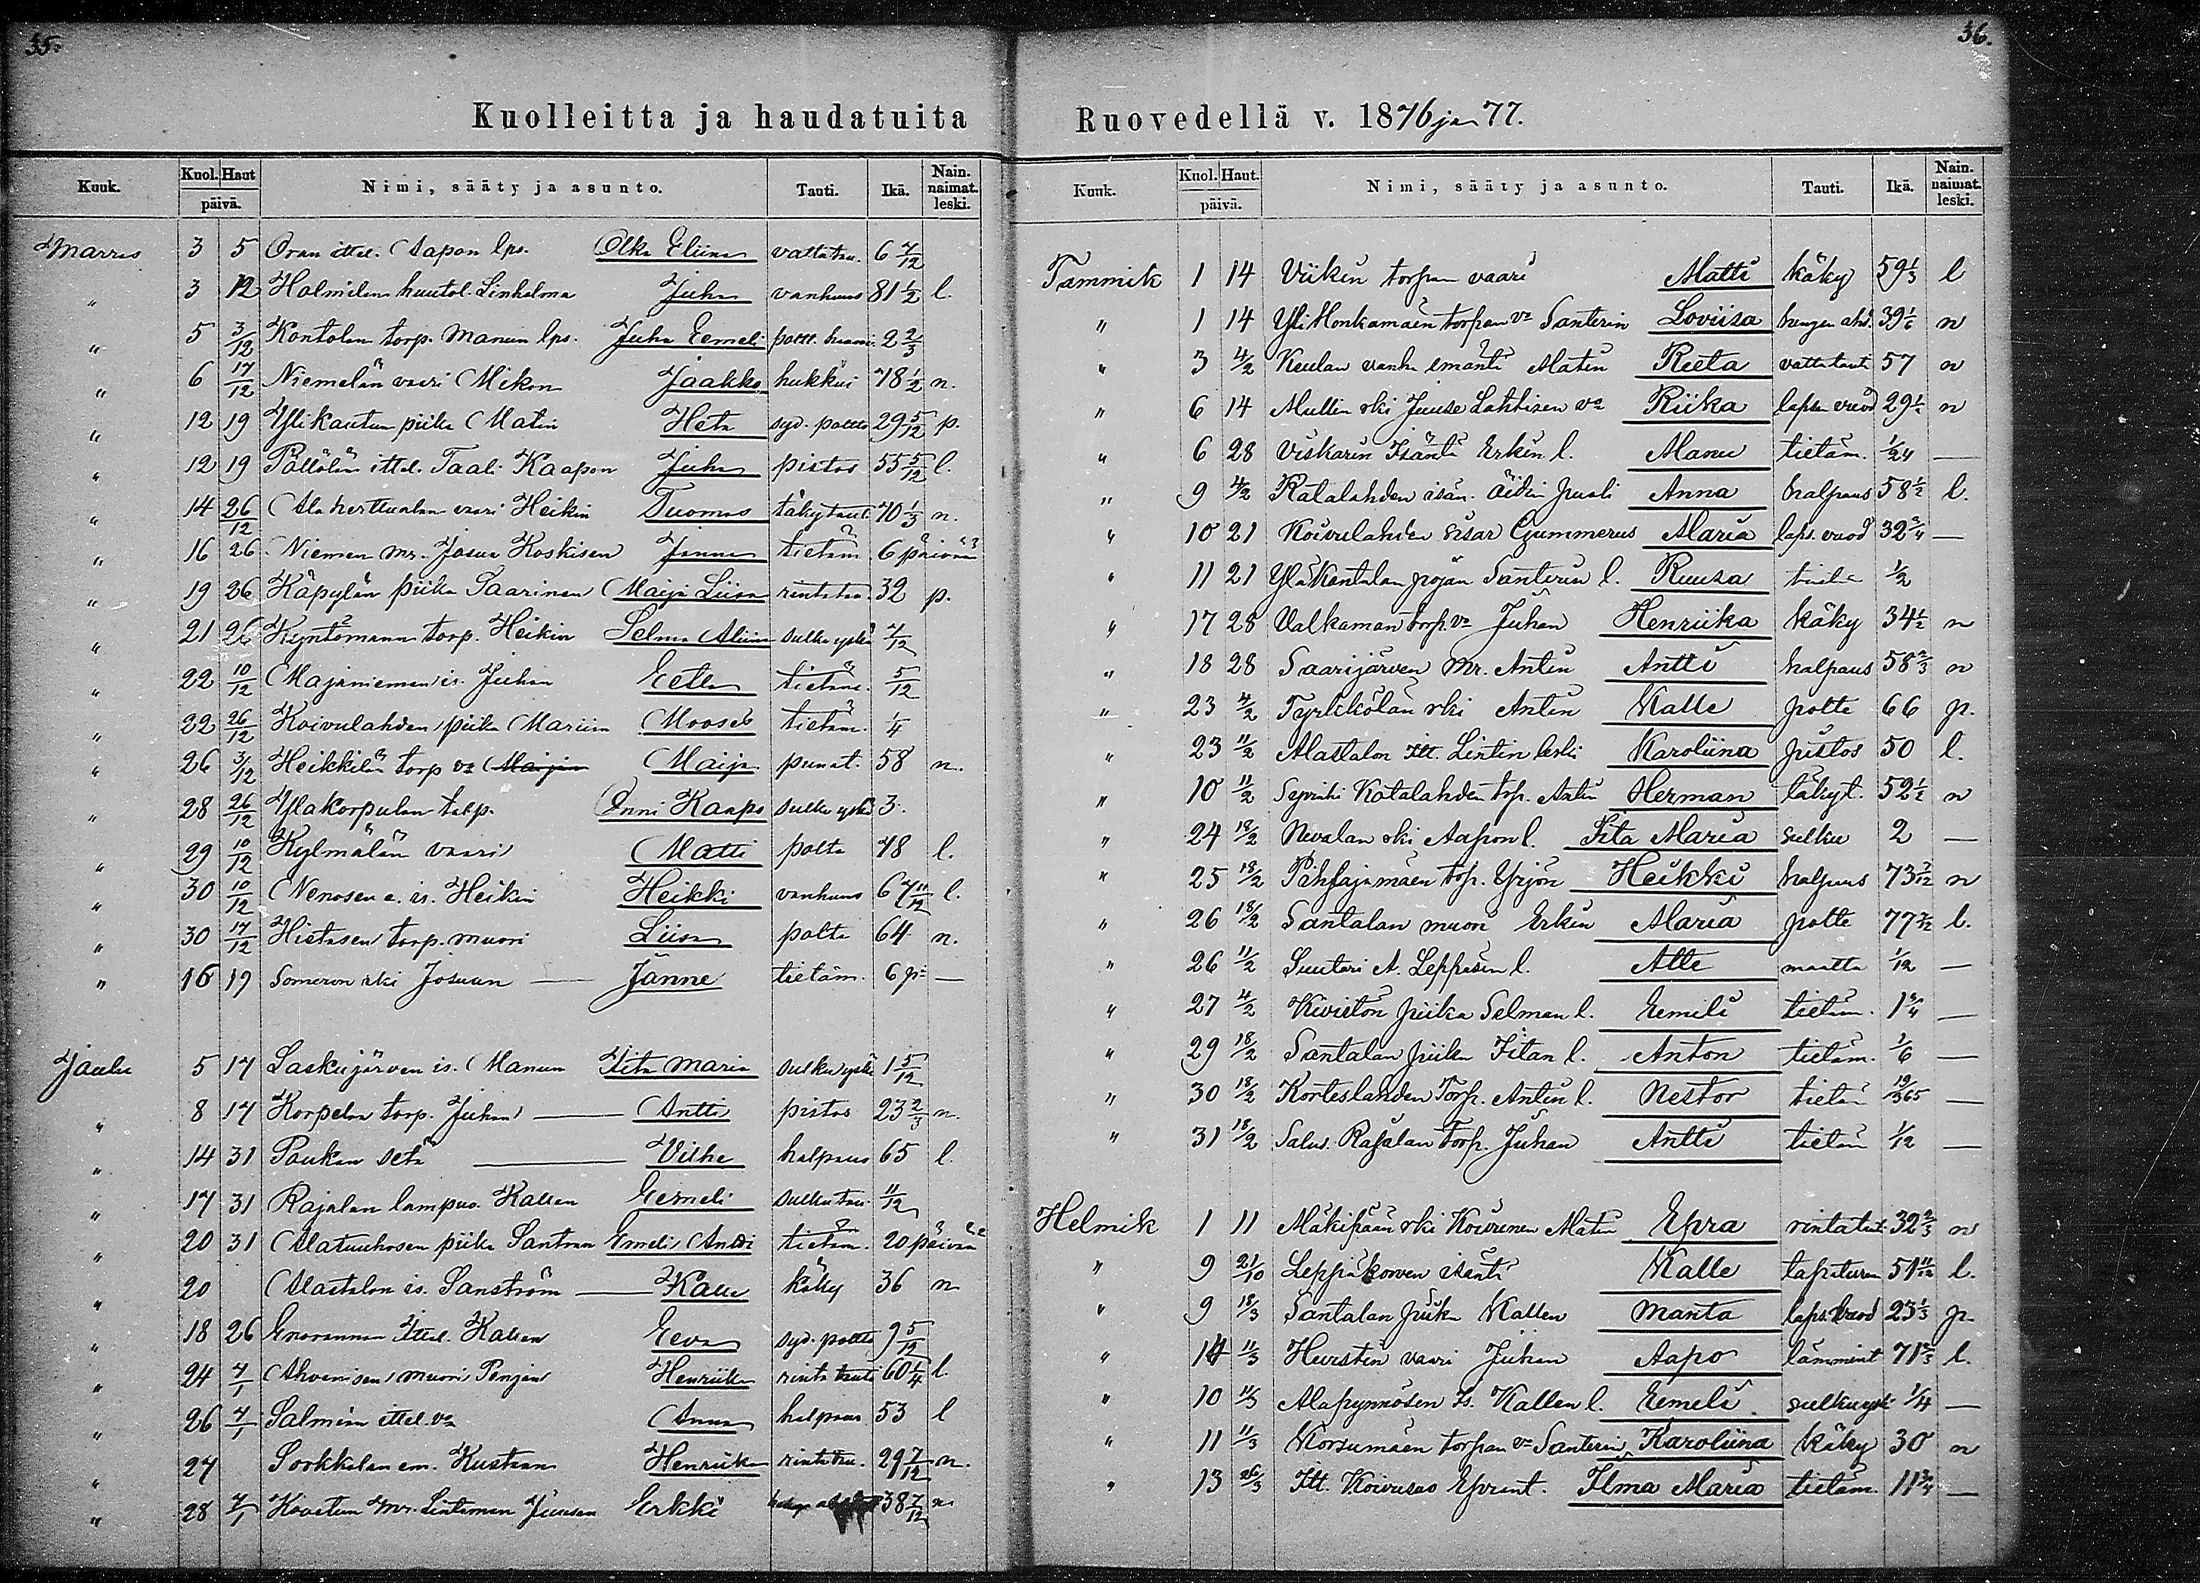 35.
Kuolleitta ja haudatuita
Kuuk. Kuol. Haut päivä. Nimi, sääty ja asunto. Tauti. Ikä. Nain. naimat. leski.
Marras 3 5 Oran ittel. Aapon lps. Olka Eliina vattatau. 6 7/12
" 3 12 Holmilan huutol. Linholma Juha vanhuus 81 1/2 l.
" 5 3/12 Kontolan torp. Manun lps. Juha Eemeli poltt. 2 2/3
" 6 17/12 Niemelän vaari Mikon Jaakko hukkui 78 1/2 n.
" 12 19 Ylikautun piika Matin Heta syd. poltto 29 5/12 p.
" 12 19 Pöllölän ittel. Taali Kaapon Juha pistos 55 5/12 l.
" 14 26/12 Alaherttualan vaari Heikin Tuomas täkytaut. 70 1/3 n.
" 16 26 Niemen mr. Josua Koskisen Janne tietäm. 6 päivää
" 19 26 Käpylän piika Saarinen Maija Liisa rintatau. 32 p.
" 21 26 Kyntömann torp. Heikin Selma Aliina sulku yskä 7/12
" 22 10/12 Majaniemen is. Juhan Eetla tietäm. 5/12
" 22 26/12 Koivulahden piika Mariin Mooses tietäm. 1/4
" 26 3/12 Heikkilän torp va Maijan Maija punat. 58 n.
" 28 26/12 Yläkorpulan talp. Onni Kaapo sulku yskä 3.
" 29 10/12 Kylmälän vaari Matti polte 78 l.
" 30 10/12 Nenosen e. is. Heikin Heikki vanhuus 67 11/12 l.
" 30 17/12 Hietasen torp. muori Liisa polte 64 n.
" 16 19 Someron rki Josuan — Janne tietäm. 6 p: —
Joulu 5 17 Laskujärven is. Manun Fita Maria sulku yskä 1 5/12
" 8 17 Korpelan torp. Juhan — Antti pistos 23 2/3 n.
" 14 31 Paukan setä — Vilhe halpaus 65 l.
" 17 31 Rajalan lampuo. Kallen Eemeli sulku tau. 11/12
" 20 31 Alatuuhosen piika Santran Emeli Antti tietäm. 20 päivää
" 20 Alastalon is. Sanström — Kalle käky 36 n
" 18 26 Enorannan Ittel. Kallen Eeva syd. poltto 9 5/12
" 24 7/1 Ahvenisen muori Penjan Henriika rinta tauti 60 1/4 l.
" 26 7/1 Salmein ittel. va Anna halpaus 53 l
" 27 Sorkkalan em. Kustaan Henriika rintatau. 29 7/12 n.
" 28 7/1 Kovetun Mr. Lintamon Juusan Erkki 38 7/12 n
36.
Ruovedellä v. 1876 ja 77.
Kuuk. Kuol. Haut. päivä. Nimi, sääty ja asunto. Tauti. Ikä. Nain. naimat. leski.
Tammik 1 14 Viikin torpan vaari Matti käky 59 1/3 l
" 1 14 Yli Honkamäen torpan va Santerin Loviisa hengen ahd. 39 1/6 n
" 3 4/2 Keulan vanha emäntä Matin Reeta vattatauti 57 n
" 6 14 Mullin rki Juuse Lahtisen va Riika lapsen vuod 29 1/2 n
" 6 28 Viskarin Isäntä Erkin l. Manu tietäm. 1/24 —
" 9 4/2 Katalahden isän. äidin puoli Anna halpaus 58 1/2 l.
" 10 21 Koivulahden sisar Gummerus Maria laps. vuod 32 3/4 —
" 11 21 Yläkantalan pojan Santerin l. Ruusa 1/2
" 17 28 Valkaman torp. va Juhan Henriika käky 34 1/2 n
" 18 28 Saarijärven Mr. Antin Antti halpaus 58 2/3 n
" 23 4/2 Tyrkkölän rki Antin Kalle polte 66 p.
" 23 11/2 Alastalon Itt. Lintin leski Karoliina pistos 50 l.
" 10 11/2 Katalahden torp. Antin Herman täkyt. 52 1/2 n
" 24 18/2 Nevalan rki Aapon l. Fita Maria sulku 2 —
" 25 18/2 Pihlajamäen torp. Yrjön Heikki halpaus 73 7/12 n
" 26 18/2 Santalan muori Erkin Maria polte 77 7/12 l.
" 26 11/2 Suutari A. Leppäsen l. Atte maatta 1/12 —
" 27 4/2 Kivistön piika Selman l. Eemili tietäm. 1 3/4 —
" 29 18/2 Santalan piika Fitan l. Anton tietäm. 1/6 —
" 30 18/2 Korteslahden Torp. Antin l. Nestor tietä 19/365 —
" 31 18/2 Salus. Rajalan Torp. Juhan Antti tietäm 1/12 —
Helmik 1 11 Mäkipään rki Koivunen Matin Epra rintataut. 32 2/3 n
" 9 21/10 Leppäkorven isäntä Kalle tapaturm 51 11/12 l.
" 9 18/3 Santalan piik Kallen Manta laps. vuod 23 1/3 p.
" 14 11/3 Hurstin vaari Juhan Aapo lämmint 71 2/3 l.
" 10 11/3 Alapynnösen Is. Kallen l. Eemeli sulku ysk 1/4 —
" 11 11/3 Korsumäen torpan va Santerin Karoliina käky 30 n
" 13 26/3 Itt. Koivusas Epraint. Ilma Maria tietäm. 11 3/4 —